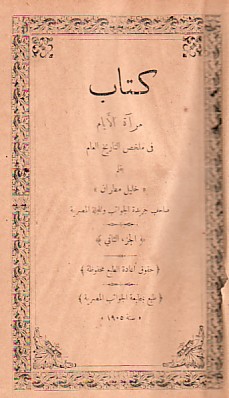 كتاب
مرآة الأيام
في ملخص التاريخ العام
بقلم
« خليل مطران »
صاحب جريدة الجوائب والمجلة المصرية
﴿ الجزء الثاني ﴾
﴿ حقوق اعادة الطبع محفوظة ﴾
﴿ طبع بمطبعة الجوائب المصرية ﴾
« سنة ١٩٠٥ »